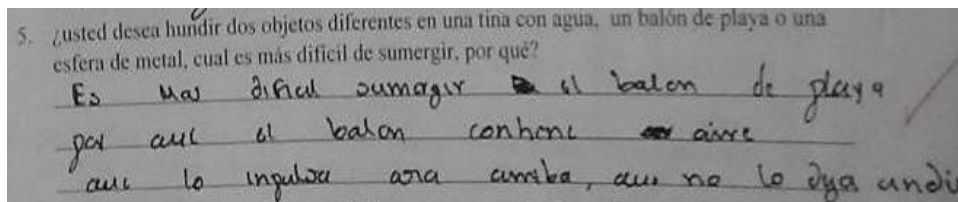 5. ¿usted desea hundir dos objetos diferentes en una tina con agua, un balón de playa o una
esfera de metal, cual es más dificil de sumergir, por qué?
Es mas dificil sumergir el balon de playa
por que el balon contiene aire
que lo inpulsa ara arriba, que no lo deja undi